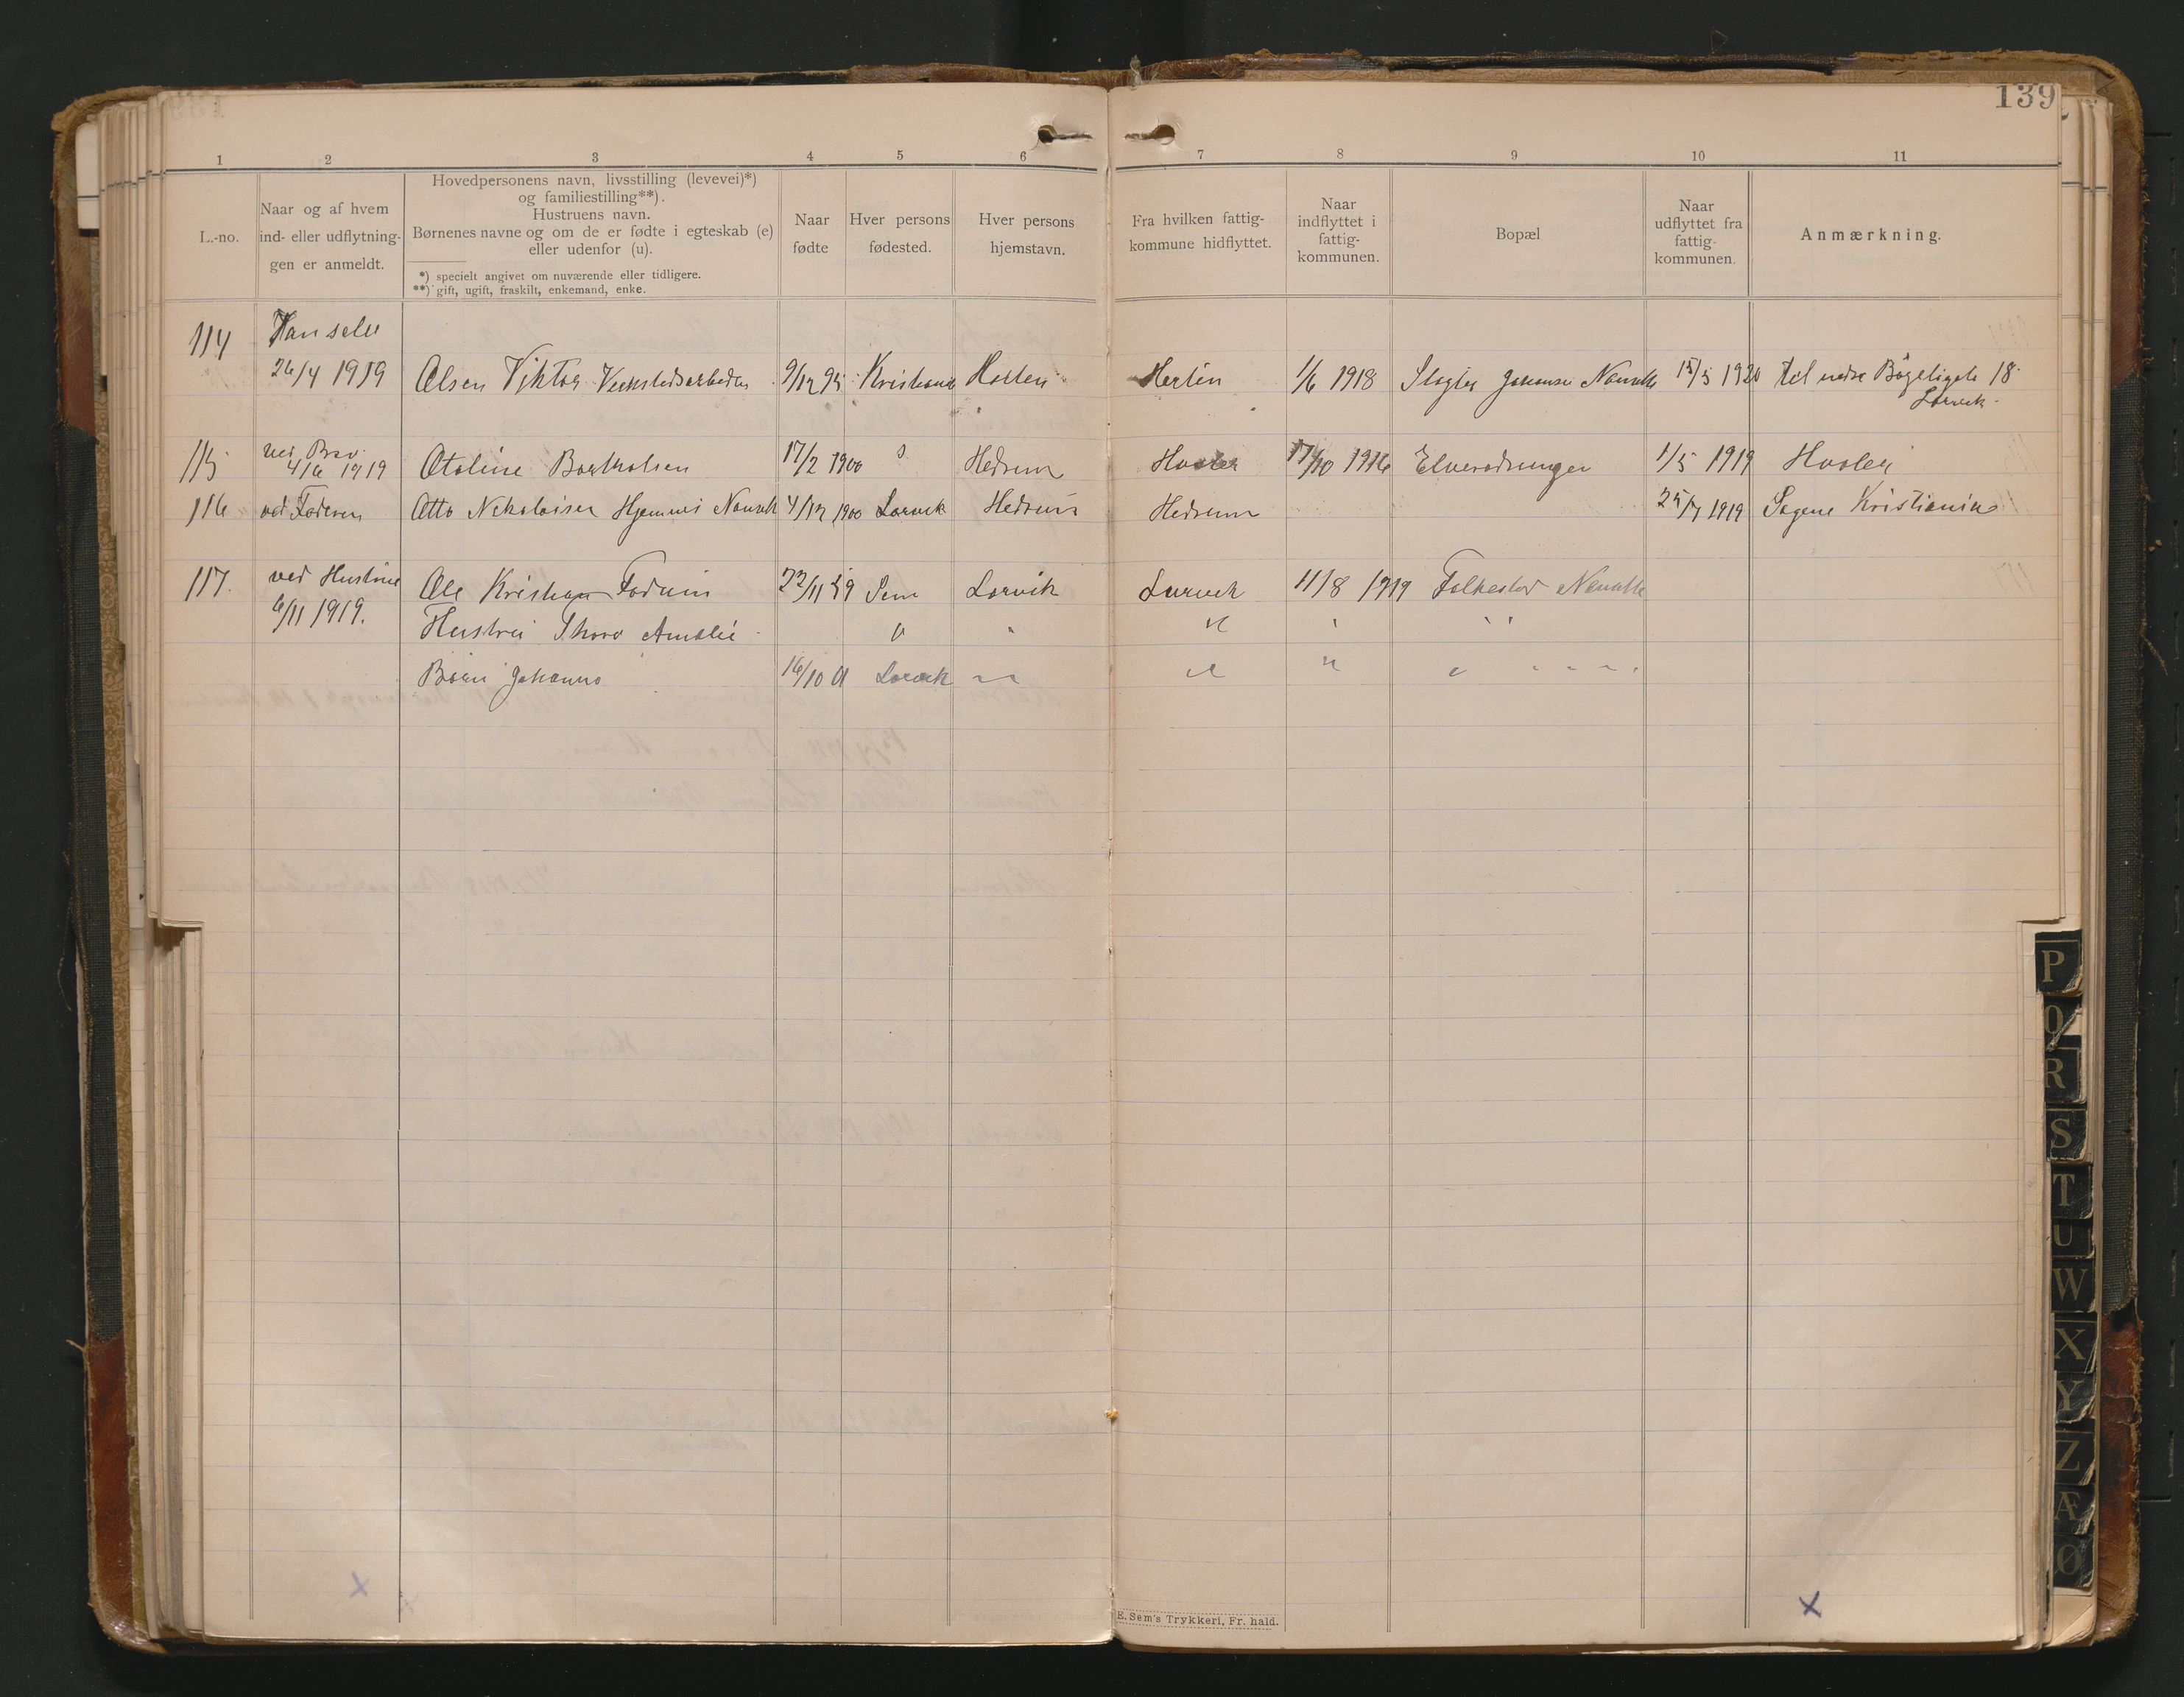 139
1 2 3 4 5 6 7 8 9 10 11
L.-no.
Naar og af hvem
ind- eller udflytnin-
gen er anmeldt.
Hovedpersonens navn, livsstilling (levevei)*)
og familiestilling**).
Hustruens navn.
Børnenes navne og om de er fødte i egteskab (e)
eller udenfor (u).
*) specielt angivet om nuværende eller tidligere.
**) gift, ugift, fraskilt, enkemand, enke.
Naar
fødte
Hver persons
fødested.
Hver persons
hjemstavn.
Fra hvilken fattig-
kommune hidflyttet.
Naar
indflyttet i
fattig-
kommunen.
Bopæl
Naar
udflyttet fra
fattig-
kommunen.
Anmærkning.
114 Han selv
26/4 1919 Olsen Viktor Verkstedsarbeder 9/12 95 Kristiania 1/6 1918 Slagter Johansen Nanseth 15/5 1920 til nedre Bøgeligate 18
Larvik
115 ved Brev
4/6 1919 Otoline Bartholsen 17/2 1900 Hedrum 17/10 1916 1/5 1919
116 ved Faderen Otto Nikolaisen Hjemmei Nanseth 4/12 1900 Larvik Hedrum Hedrum 25/7 1919 Sagene Kristiania
117. ved Hustrue Ole Kristian Fadum 22/11 59 Sem Larvik Larvik 11/8 1919 Nanseth
6/11 1919. Hustru Thora Amalie " " " " " "
Barn Johanna 16/10 01 Larvik " " " " " "
E. Sem's Trykkeri, Fr. hald.
P
Q
R
S
T
U
W
X
Y
Z
Æ
Ø